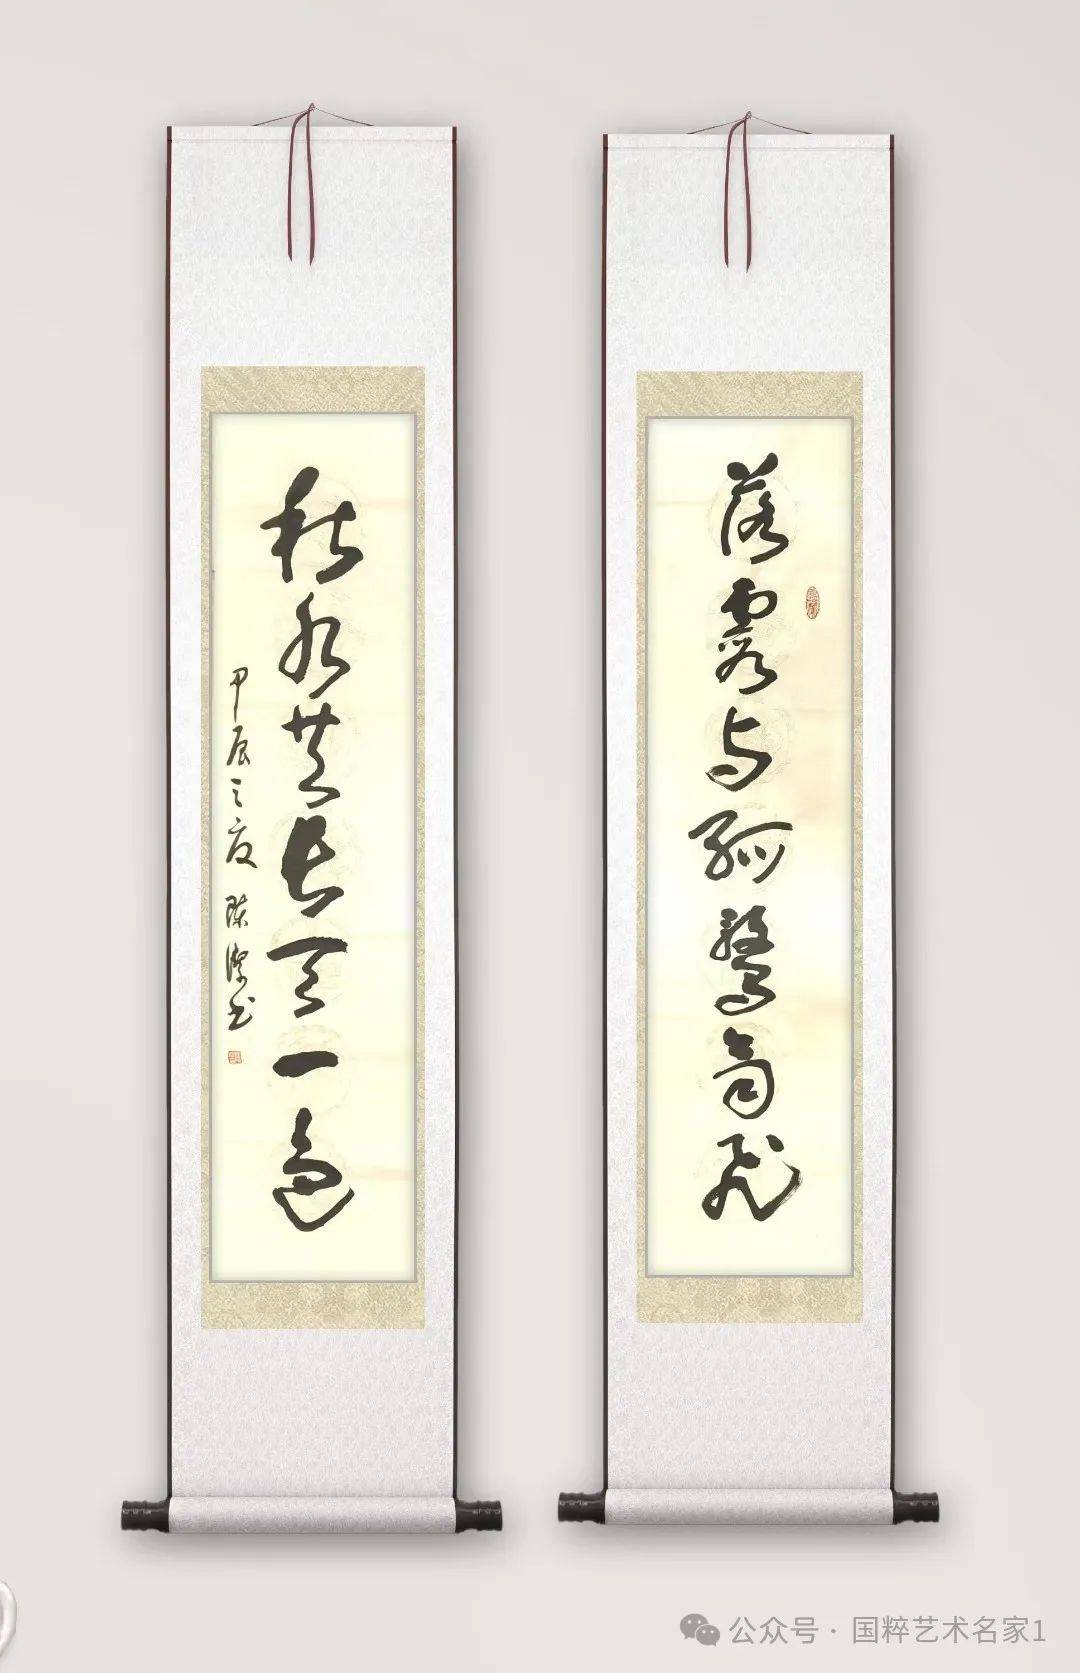 落霞与孤鹜齐飞
秋水共长天一色
甲辰之夏 陈 书
公众号 · 国粹艺术名家1